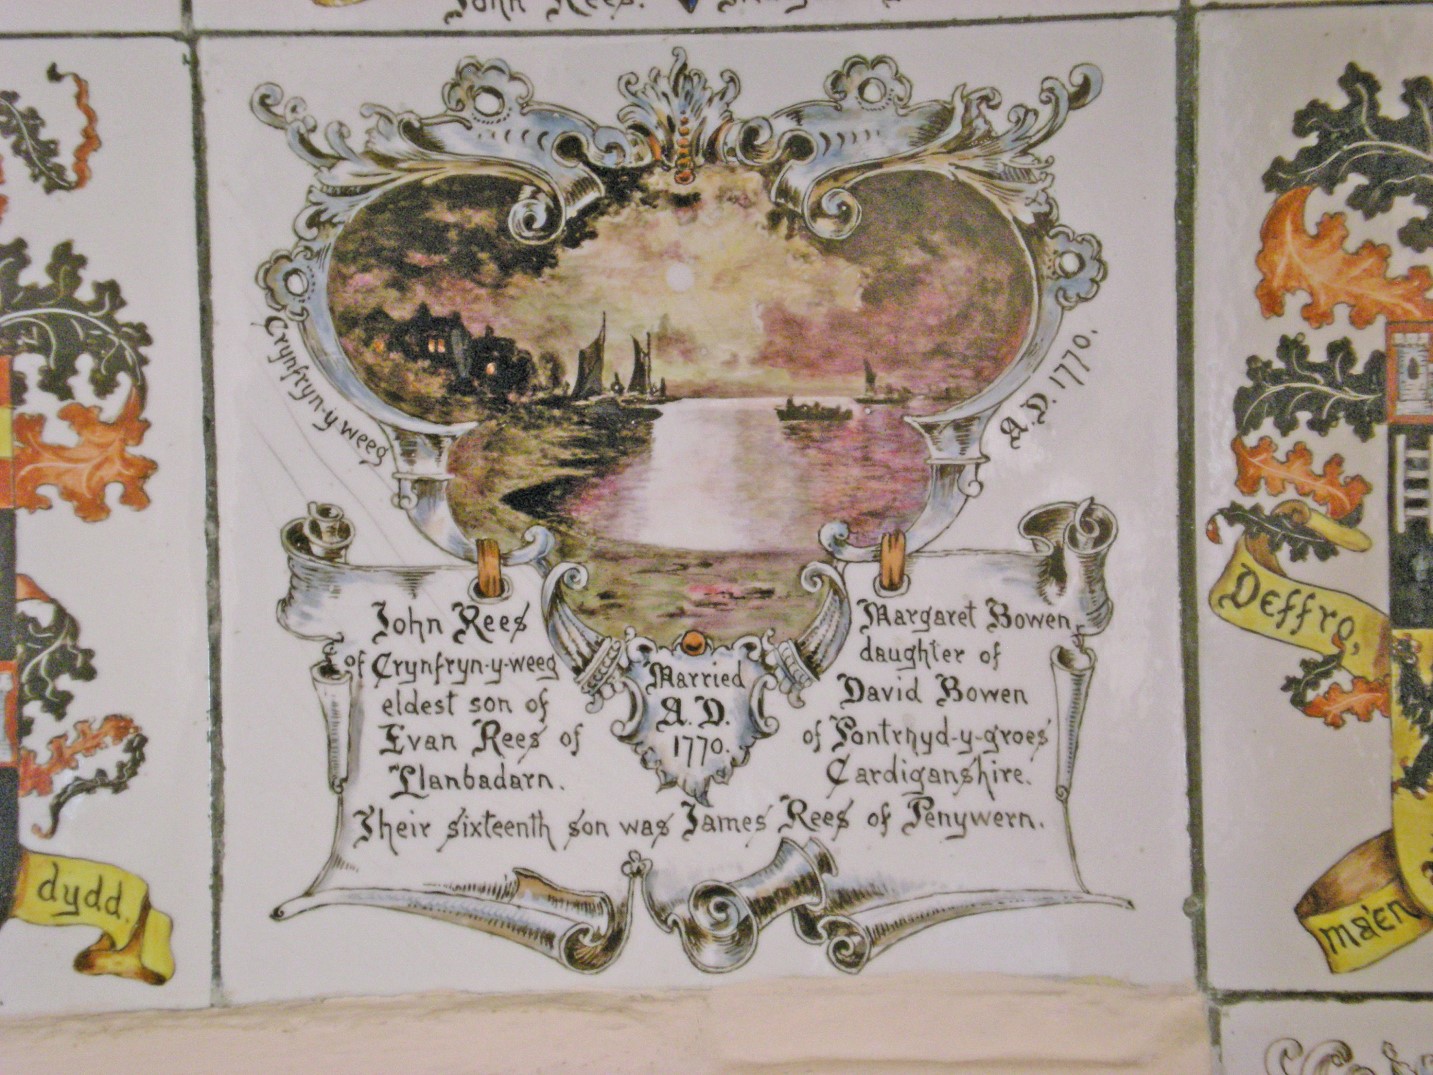 John Rees.
Crynfryn-y-weeg
A.D. 1770.
John Rees
of Crynfryn-y-weeg
eldest son of
Evan Rees of
Llanbadarn.
Married
A.D.
1770.
Margaret Bowen,
daughter of
David Bowen
of Pontrhyd-y-groes
Cardiganshire.
Their sixteenth son was James Rees of Penywern.
dydd.
Deffro,
ma'en